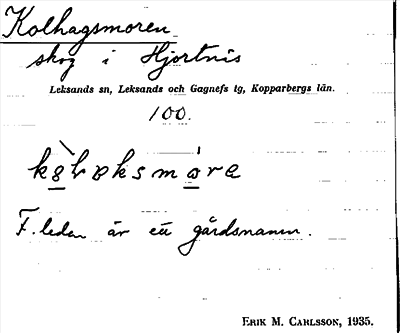 Kolhagsmoren
skog i Hjortnäs
Leksands sn, Leksands och Gagnefs tg, Kopparbergs län.
100.
F. leden är ett gårdsnamn.
ERIK M. CARLSSON, 1935.